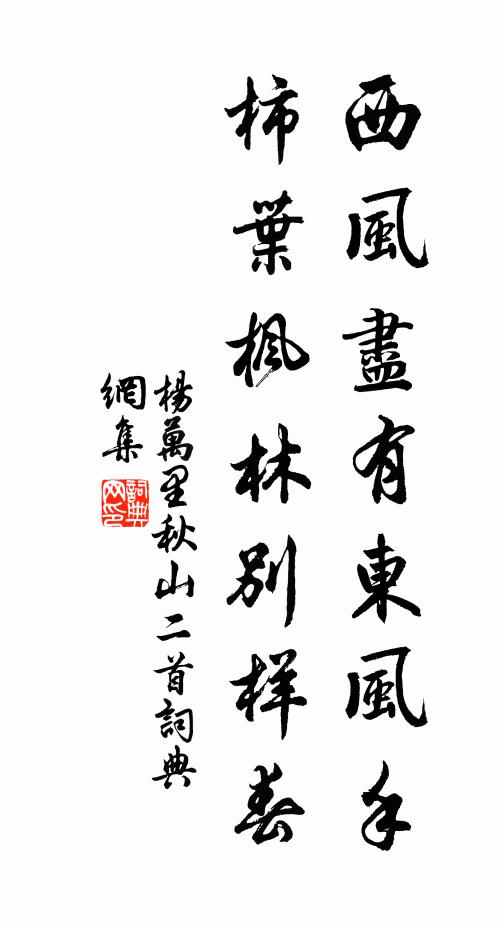 西風盡有東風手
柿葉楓林別樣春
楊萬里秋山二首詞典
網集
詞典
网印